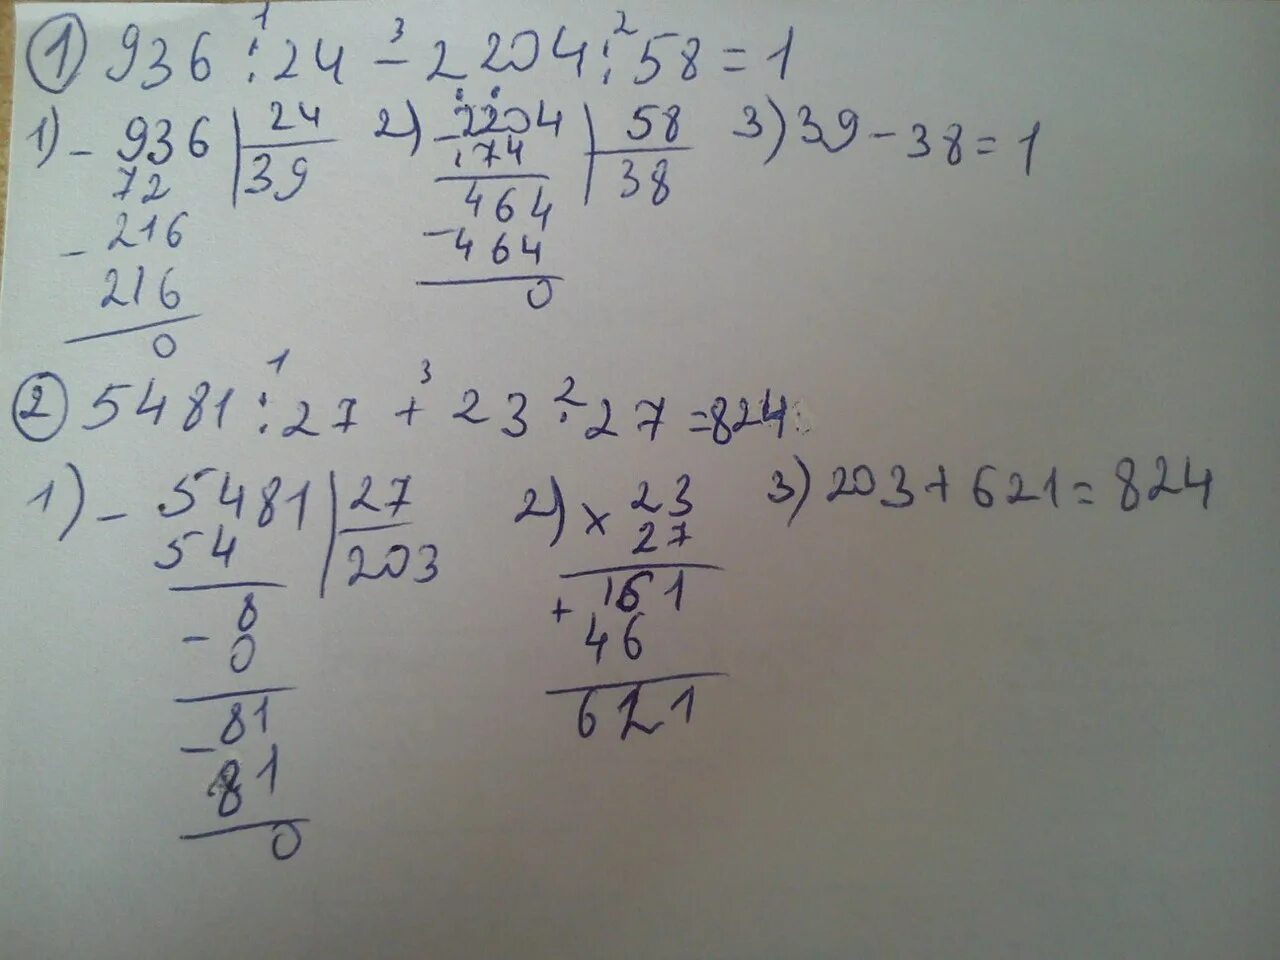 ① 936 : 24 - 2204 : 58 = 1
1 3 2
1) - 936 | 24
72 | 39
- 216
216
0
2) - 2204 | 58
174 | 38
464
- 464
0
3) 39 - 38 = 1
② 5481 : 27 + 23 · 27 = 824
1 3 2
1) - 5481 | 27
54 | 203
8
- 0
81
- 81
0
2) × 23
27
161
+ 46
621
3) 203 + 621 = 824